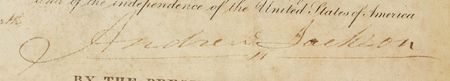 of the independence of the United States of America
Andrew Jackson
BY THE PRESI